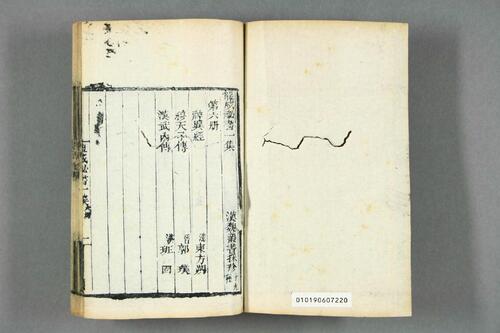 龍威秘書一集 漢魏叢書採珍
第六冊
神異經 漢 東方朔
穆天子傳 晉 郭璞
漢武內傳 漢 班固
龍威秘書一集
010190607220